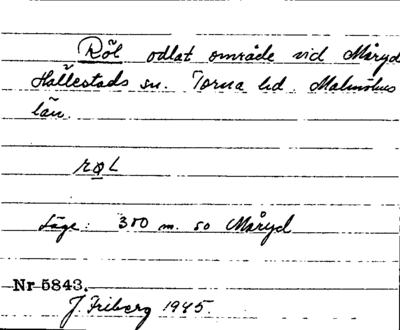 Röl odlat område vid Måryd
Hällestads sn. Torna hd. Malmöhus
län.
røl
Läge: 300 m. so Måryd
Nr 5843.
J. Friberg 1945.